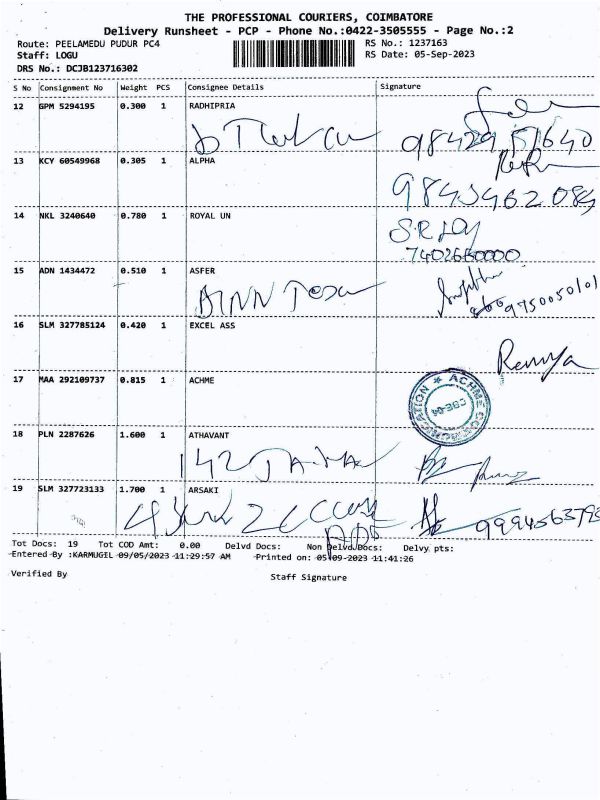 THE PROFESSIONAL COURIERS, COIMBATORE
Delivery Runsheet - PCP - Phone No.:0422-3505555 - Page No.:2
Route: PEELAMEDU PUDUR PC4 RS No.: 1237163
Staff: LOGU RS Date: 05-Sep-2023
DRS No.: DCJB123716302
S No Consignment No Weight PCS Consignee Details Signature
12 GPM 5294195 0.300 1 RADHIPRIA
13 KCY 60549968 0.305 1 ALPHA
9843462084
14 NKL 3240640 0.780 1 ROYAL UN
7402660000
15 ADN 1434472 0.510 1 ASFER
9750050101
16 SLM 327785124 0.420 1 EXCEL ASS
Ramya
17 MAA 292109737 0.815 1 ACHME
ACHME COMMUNICATION
CBE-04
18 PLN 2287626 1.600 1 ATHAVANT
19 SLM 327723133 1.700 1 ARSAKI
Tot Docs: 19 Tot COD Amt: 0.00 Delvd Docs: Non Delvd Docs: Delvy pts:
Entered By :KARMUGIL 09/05/2023 11:29:57 AM Printed on: 05-09-2023 11:41:26
Verified By Staff Signature